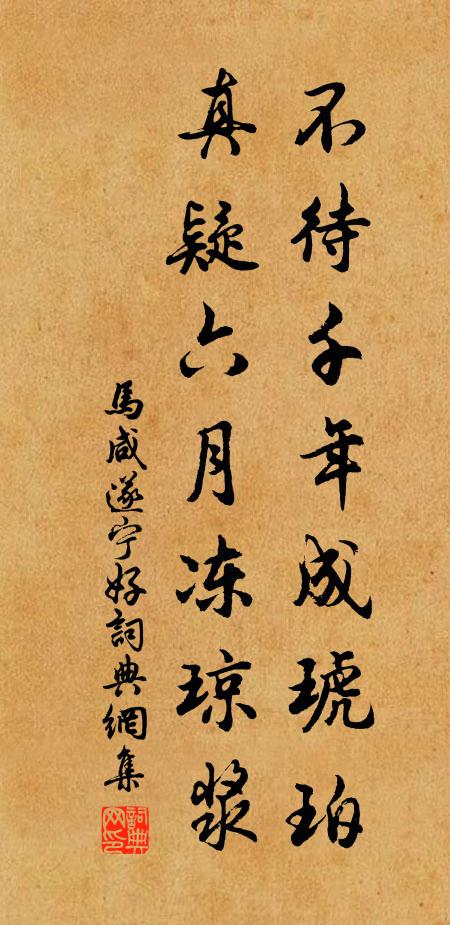 不待千年成琥珀
真疑六月冻琼浆
馬咸遂宁好詞典網集
詞典网印